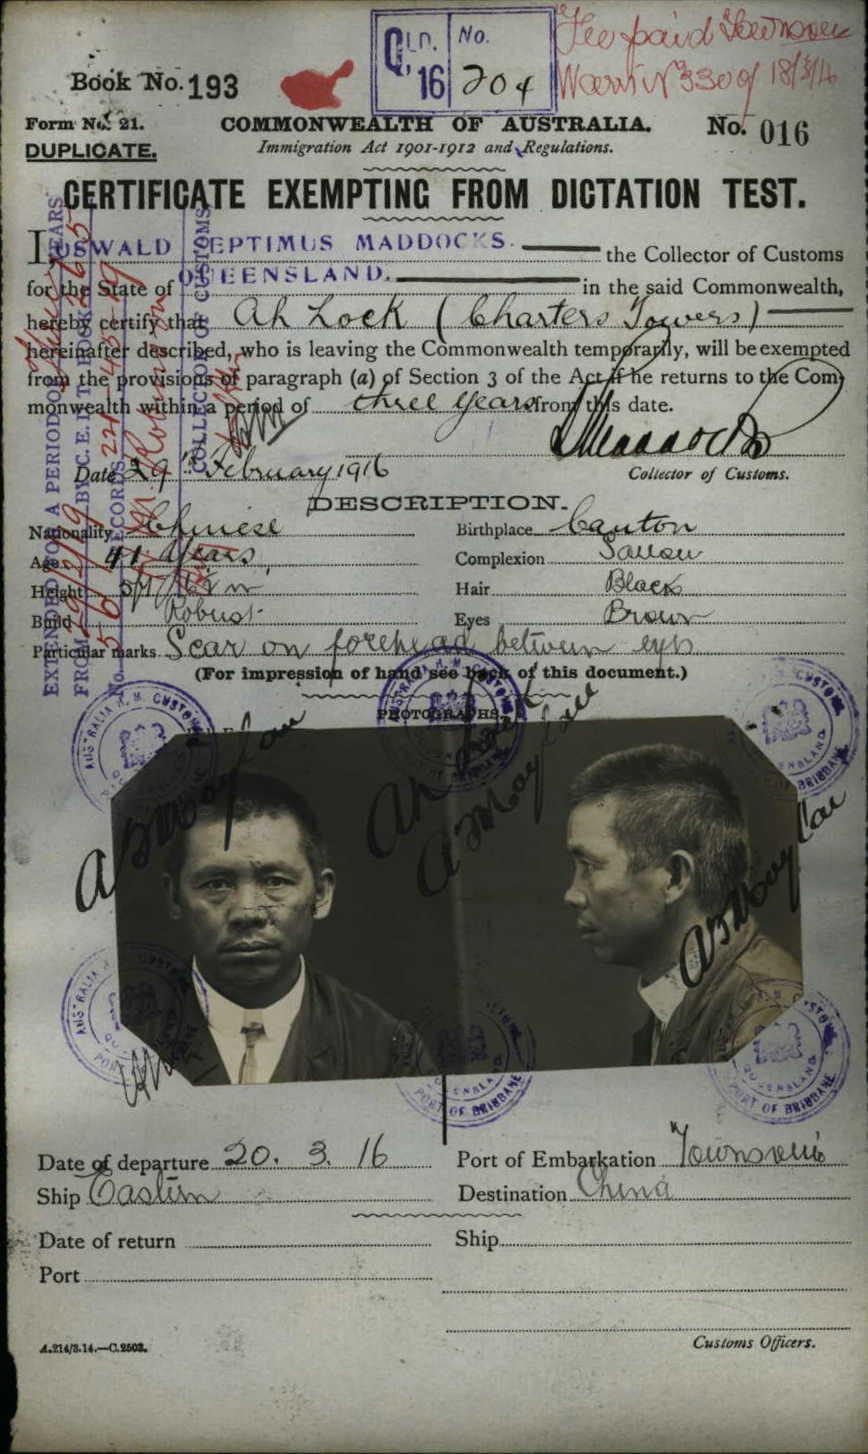 QLD. No.
16 204
Fee paid Townsville
18/3/16
Book No. 193
Form No. 21.
COMMONWEALTH OF AUSTRALIA.
No. 016
DUPLICATE.
Immigration Act 1901-1912 and Regulations.
CERTIFICATE EXEMPTING FROM DICTATION TEST.
I, OSWALD SEPTIMUS MADDOCKS. the Collector of Customs
for the State of QUEENSLAND. in the said Commonwealth,
hereby certify that Ah Lock (Charters Towers)
hereinafter described, who is leaving the Commonwealth temporarily, will be exempted
from the provisions of paragraph (a) of Section 3 of the Act if he returns to the Com-
monwealth within a period of three years from this date.
Date 29th February 1916
Collector of Customs.
EXTENDED FOR A PERIOD OF YEARS
FROM BY C.E.D.T. BOOK
No. RECORDS
COLLECTOR OF CUSTOMS
DESCRIPTION.
Nationality Chinese Birthplace Canton
Age 41 years Complexion Sallow
Height Hair Black
Build Robust Eyes Brown
Particular marks Scar on forehead between eyes
(For impression of hand see back of this document.)
PHOTOGRAPHS.
AUSTRALIA H.M. CUSTOMS
QUEENSLAND
PORT OF BRISBANE
Ah Lock
Date of departure 20. 3. 16 Port of Embarkation Townsville
Ship Eastern Destination China
Date of return Ship
Port
Customs Officers.
A.214/3.14.—C.2503.